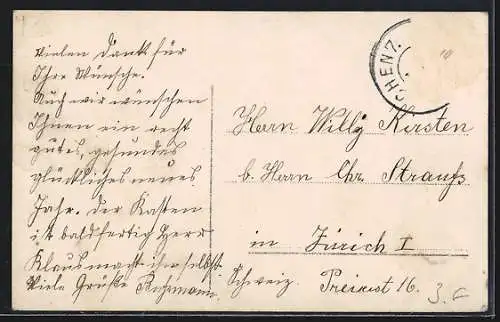 Vielen Dank für
Ihre Wünsche.
Auch wir wünschen
Ihnen ein recht
gutes, gesundes
glückliches neues
Jahr. Der Kasten
ist bald fertig Herr
Klaus macht ihn selbst.
Viele Grüße Ruhrmann.
CHEN 7.
Herrn Willy Kersten
b. Herrn Chr. Strauß
in Zürich I
Schweiz. 16.
3.-